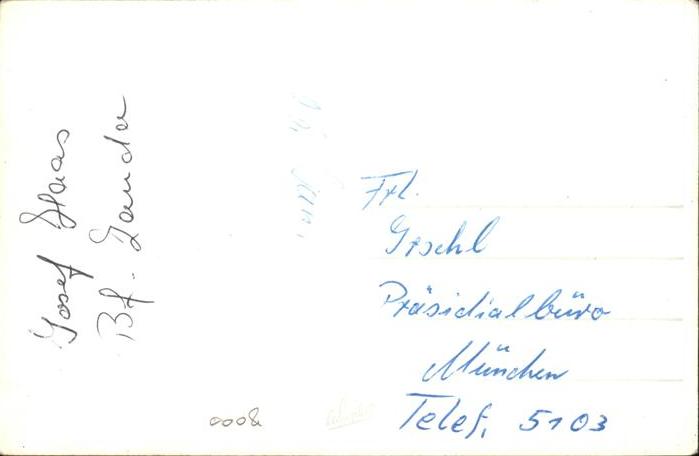 Josef Haas
Bf. Landau
Frl.
Gschl
Präsidialbüro
München
Telef. 5103
0008